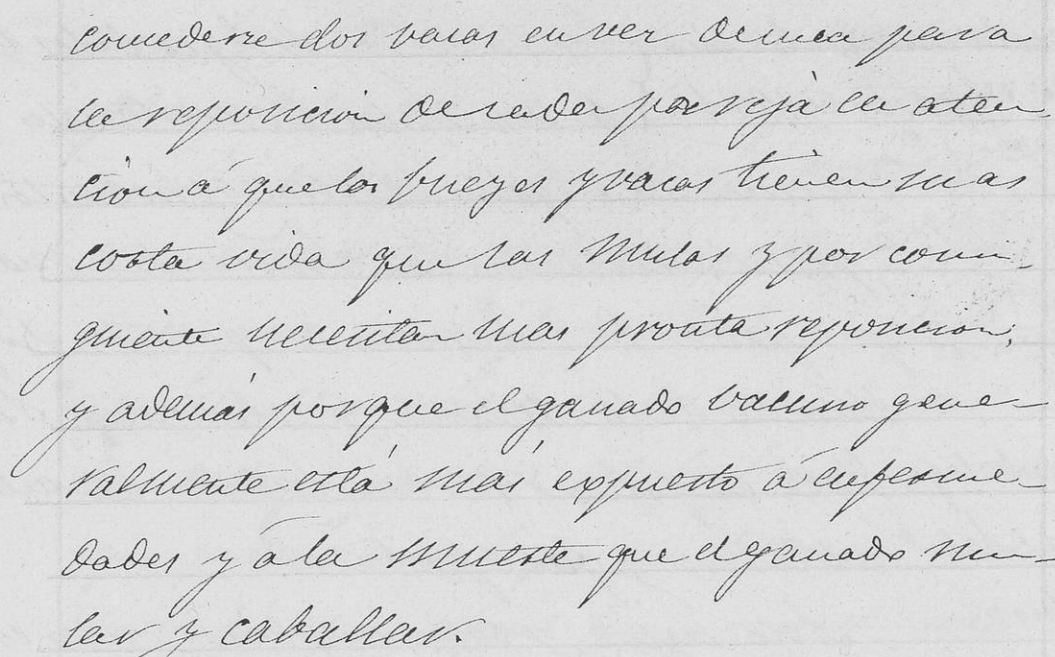 concederse dos vacas en vez de una para
la reposicion de cada pareja en aten
cion á que los bueyes y vacas tienen mas
corta vida que las mulas y por consi-
guiente necesitan mas pronta reposicion,
y además porque el ganado vacuno gene-
ralmente está más expuesto á enferme-
dades y á la muerte que el ganado mu-
lar y caballar.